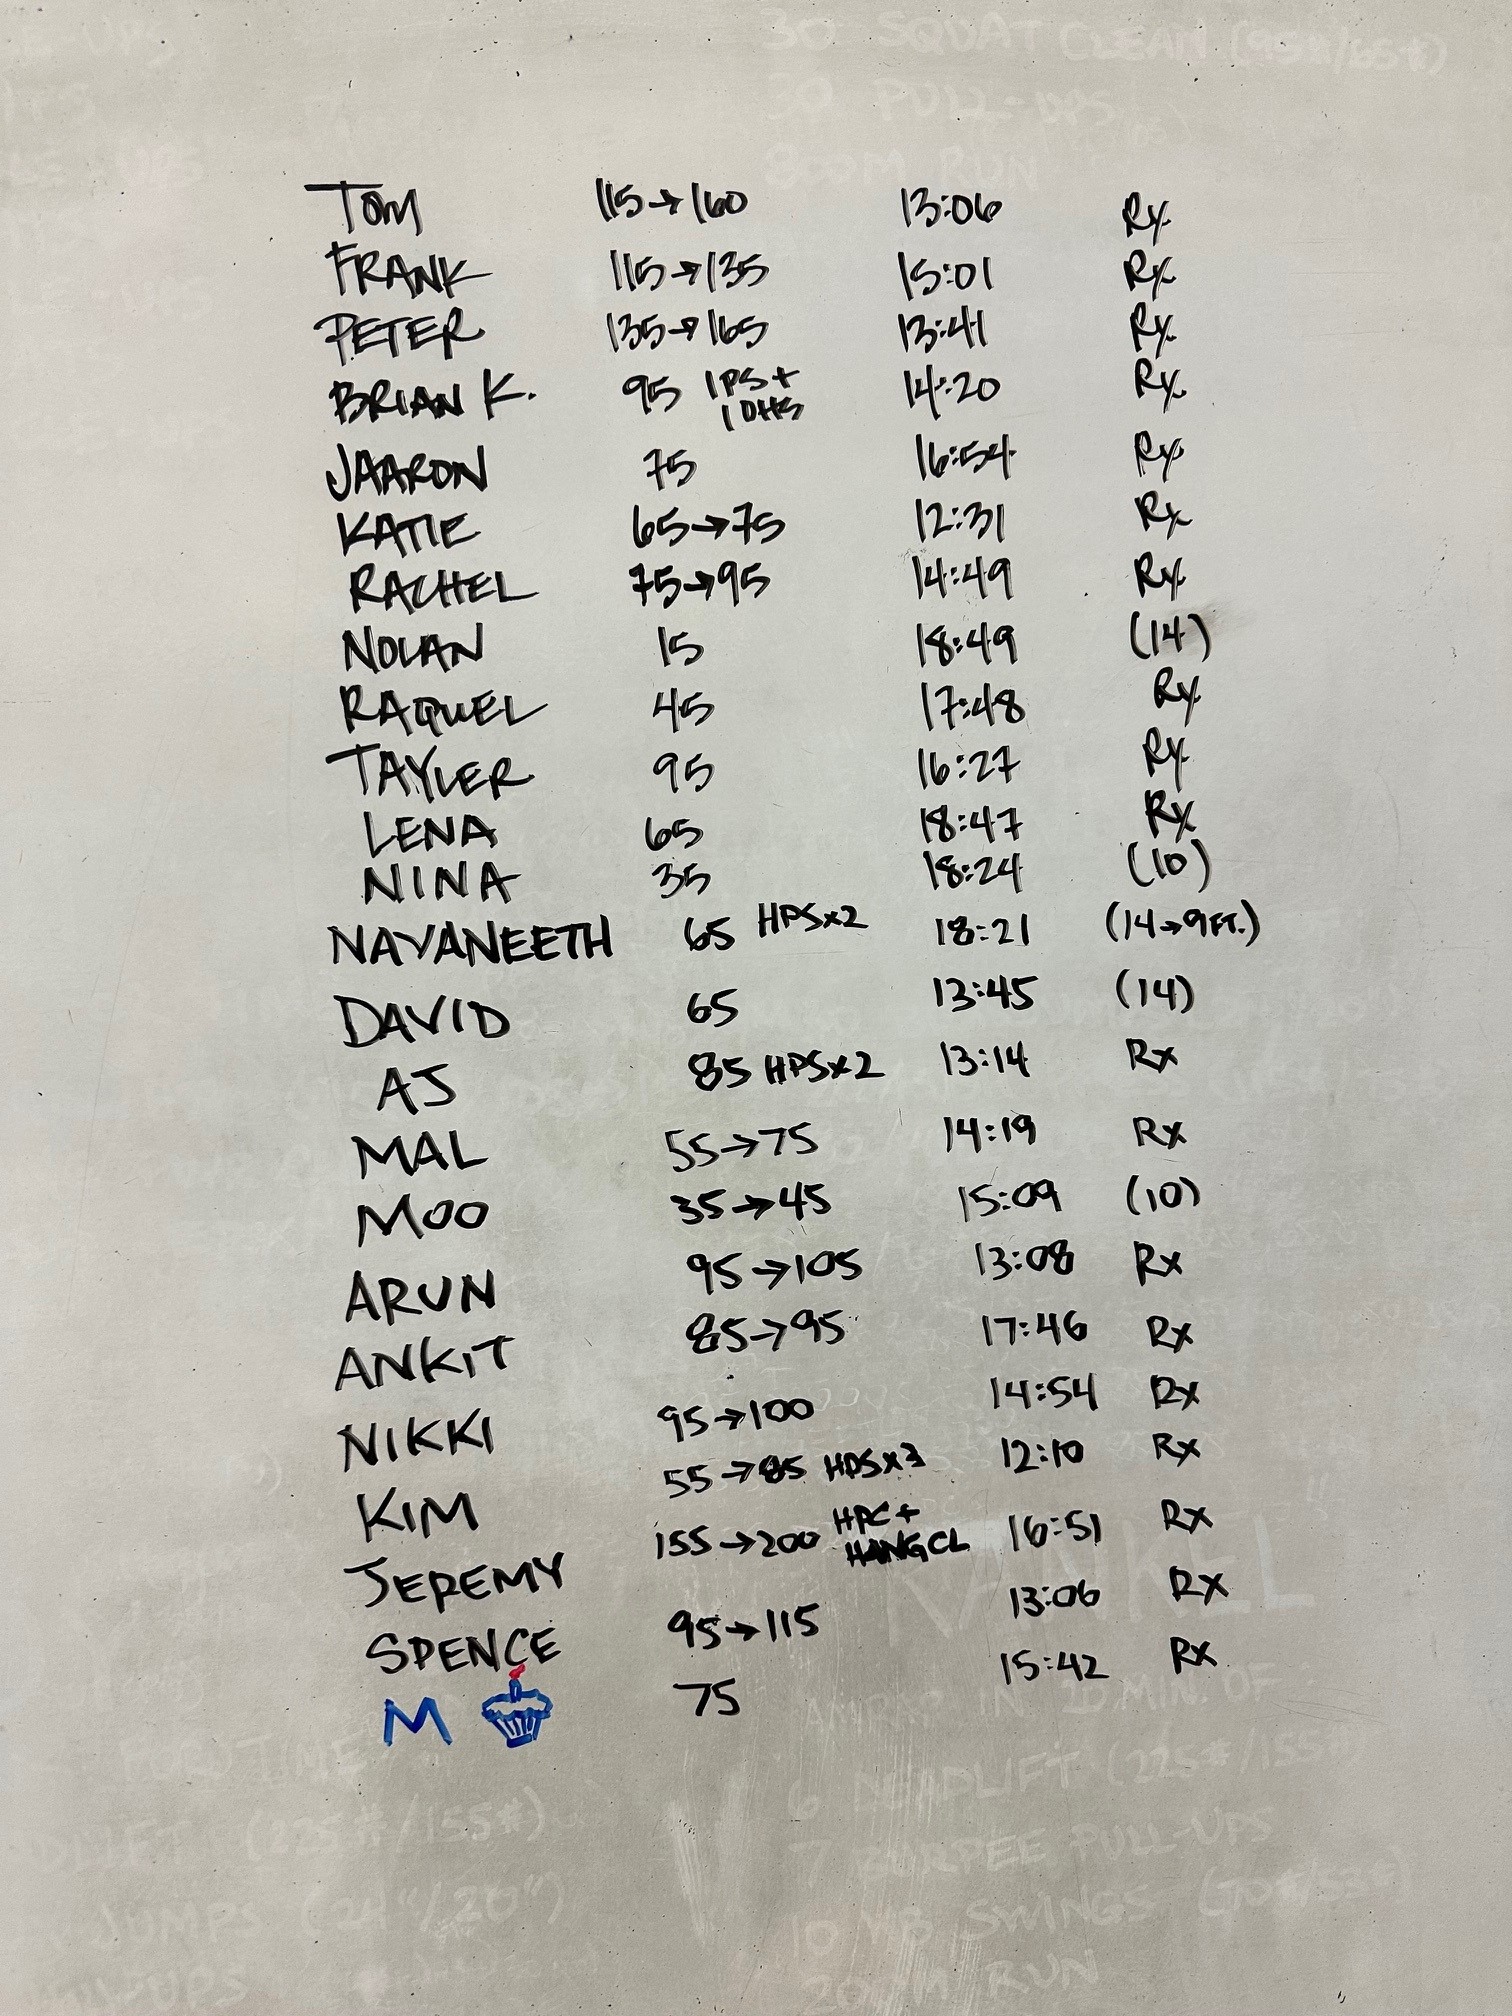 30 SQUAT CLEAN (95#/65#)
30 PULL-UPS
800M RUN
TOM 115→160 13:06 Rx
FRANK 115→135 15:01 Rx
PETER 135→165 13:41 Rx
BRIAN K. 95 1PS+ 1OHS 14:20 Rx
JAARON 75 16:54 Rx
KATIE 65→75 12:31 Rx
RACHEL 75→95 14:49 Rx
NOLAN 15 18:49 (14)
RAQUEL 45 17:48 Rx
TAYLER 95 16:27 Rx
LENA 65 18:47 Rx
NINA 35 18:24 (10)
NAVANEETH 65 HPSx2 18:21 (14→9FT.)
DAVID 65 13:45 (14)
AJ 85 HPSx2 13:14 Rx
MAL 55→75 14:19 Rx
MOO 35→45 15:09 (10)
ARUN 95→105 13:08 Rx
ANKIT 85→95 17:46 Rx
NIKKI 95→100 14:54 Rx
KIM 55→85 HPSx3 12:10 Rx
JEREMY 155→200 HPC+ HANG CL 16:51 Rx
SPENCE 95→115 13:06 Rx
M 75 15:42 Rx
AMRAP IN 20 MIN. OF:
FOR TIME
6 DEADLIFT (225#/155#)
(225#/155#)
7 BURPEE PULL-UPS
JUMPS (24"/20")
10 KB SWINGS
200M RUN